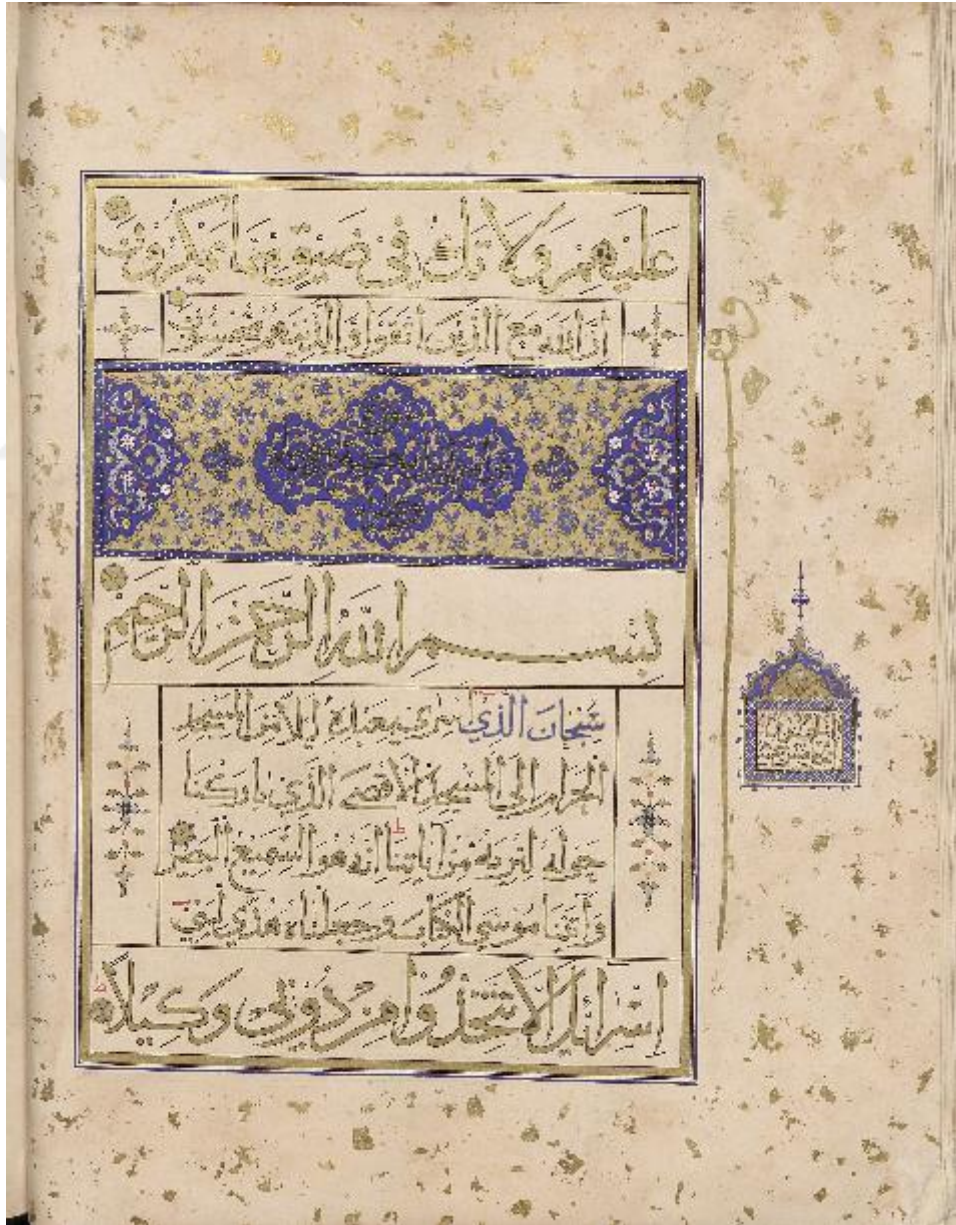 عليهم ولا تك في ضيق مما يمكرون
ان الله مع الذين اتقوا والذين هم محسنون
بسم الله الرحمن الرحيم
سبحان الذي اسرى بعبده ليلا من المسجد
الحرام الى المسجد الاقصى الذي باركنا
حوله لنريه من آياتنا انه هو السميع البصير
وآتينا موسى الكتاب وجعلناه هدى لبني
اسرائيل الا تتخذوا من دوني وكيلا